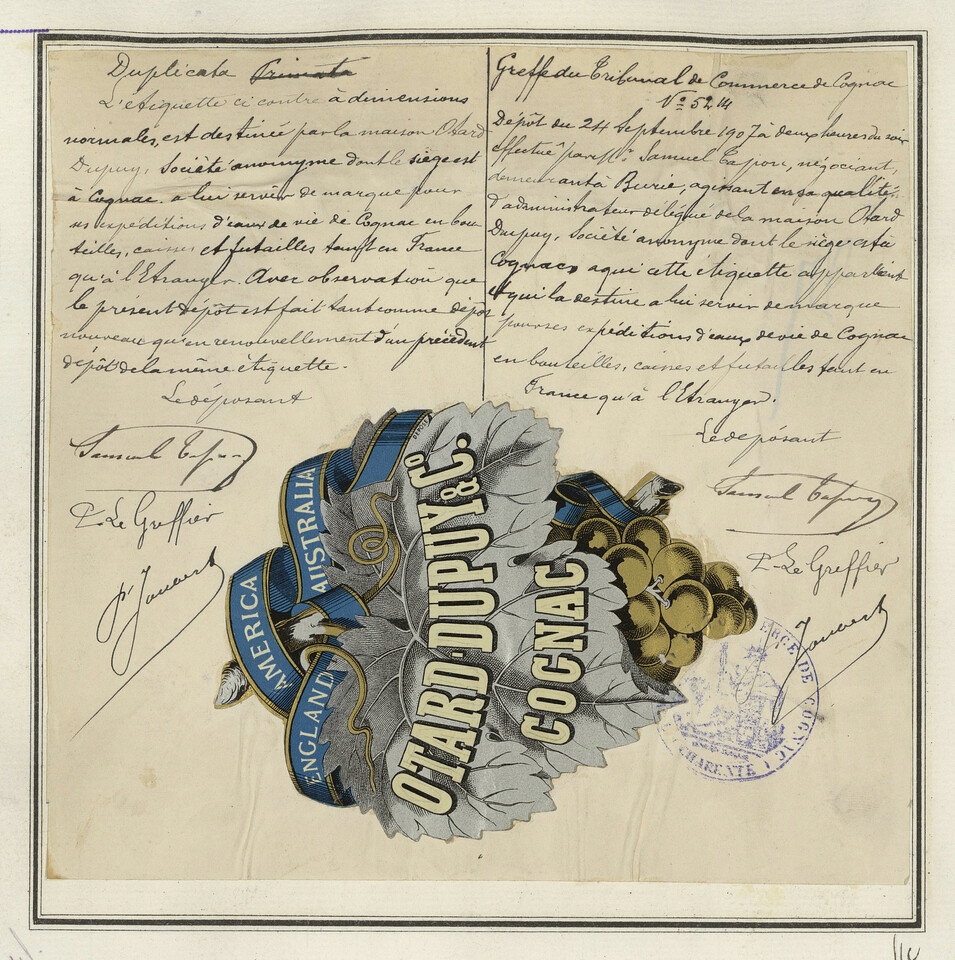 Duplicata Primata
L'étiquette ci contre à dimensions
normales, est destinée par la maison Otard
Dupuy, Société anonyme dont le siège est
à Cognac, à lui servir de marque pour
ses expéditions d'eaux de vie de Cognac en bou
teilles, caisses et futailles tant en France
qu'à l'Etranger. Avec observation que
le présent dépôt est fait tant comme dépôt
nouveau qu'en renouvellement d'un précédent
dépôt de la même étiquette.
Le déposant
Samuel Tapon
P. Le Greffier
Joubert
Greffe du Tribunal de Commerce de Cognac
N° 5214
Dépôt du 24 Septembre 1907 à deux heures du soir
effectué par Mr. Samuel Tapon, négociant,
demeurant à Burie, agissant en sa qualité
d'administrateur délégué de la maison Otard
Dupuy, Société anonyme dont le siège est à
Cognac, a qui cette étiquette appartient
et qui la destine a lui servir de marque
pour ses expéditions d'eaux de vie de Cognac
en bouteilles, caisses et futailles tant en
France qu'à l'Etranger.
Le déposant
Samuel Tapon
P. Le Greffier
Joubert
DÉPOSÉ
AUSTRALIA
AMERICA
ENGLAND
OTARD-DUPUY & Co.
COGNAC
DE COGNAC
CHARENTE